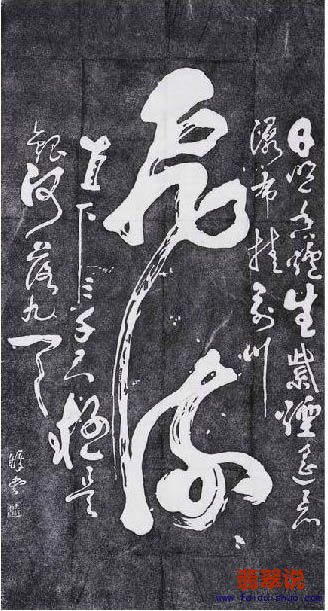 日照香爐生紫煙遙看
瀑布挂前川
飛流
直下三千尺疑是
銀河落九天
翡翠说
www.feicuishuo.com